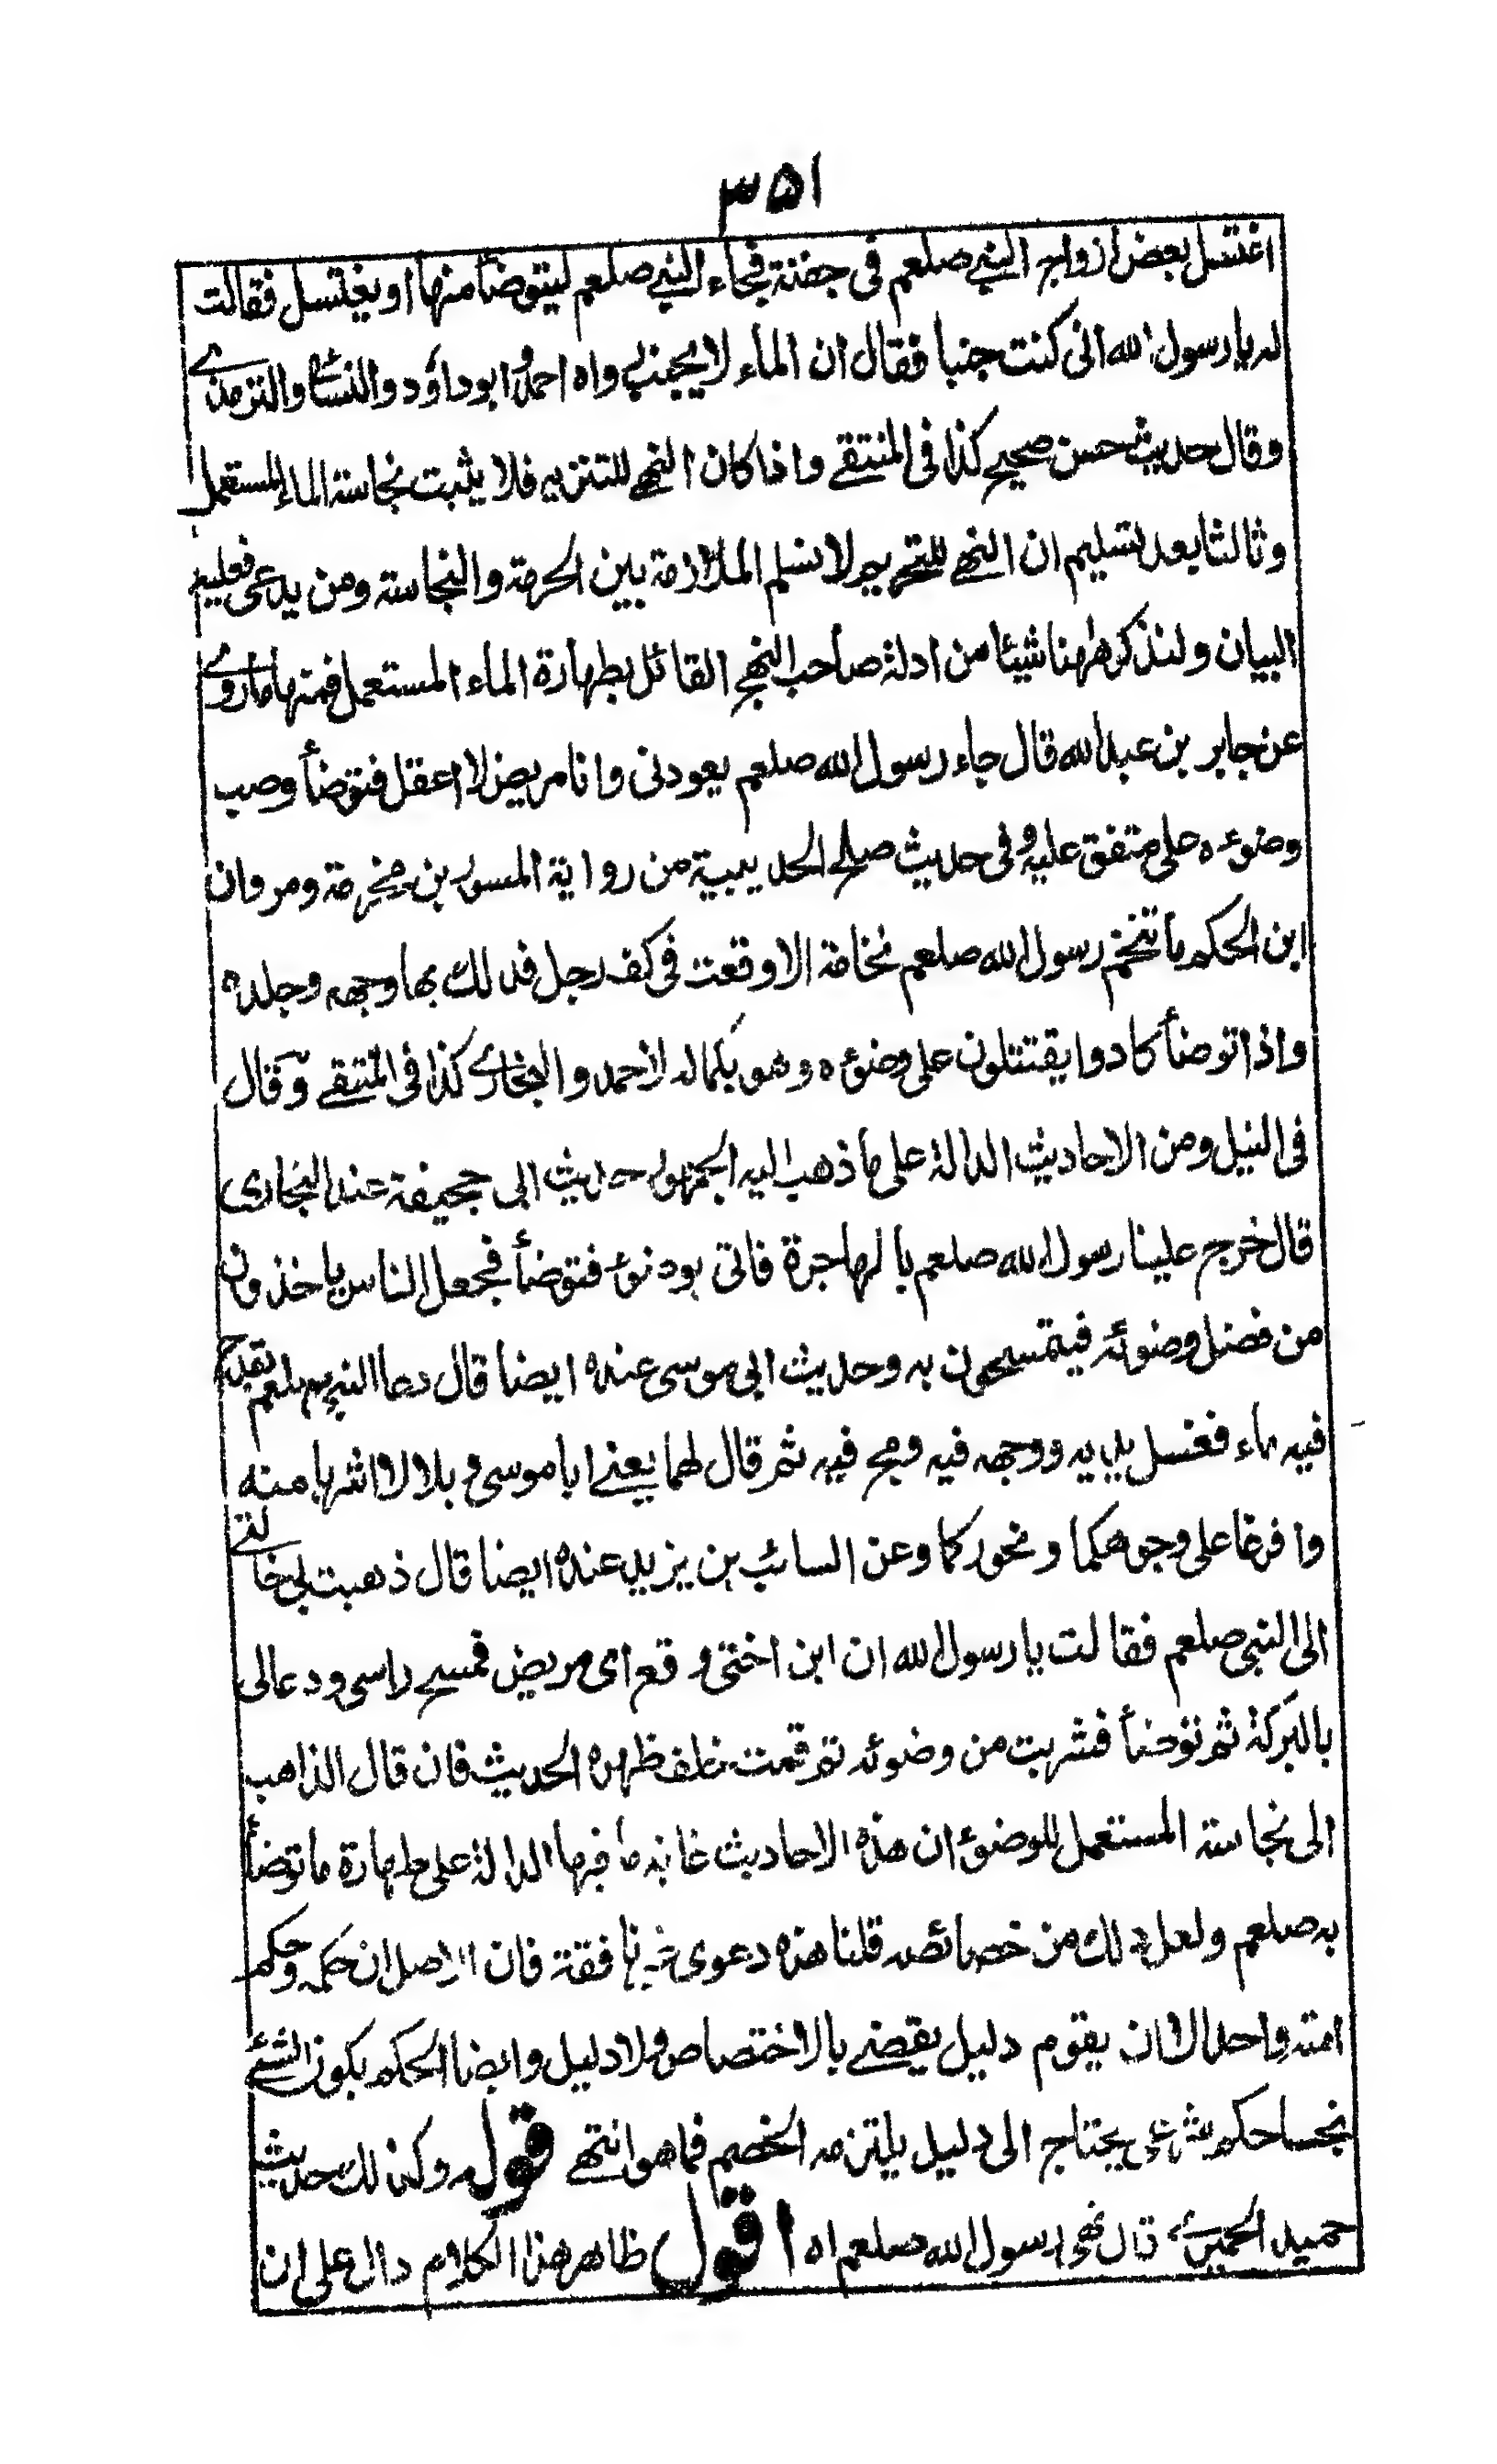 ٣٥١
اغتسل بعض ازواج النبي صلعم فى جفنة فجاء النبي صلعم ليتوضأ منها او يغتسل فقالت
له يا رسول الله انى كنت جنبا فقال ان الماء لا يجنب رواه احمد و ابو داؤد و النسائى والترمذي
وقال حديث حسن صحيح كذا فى المنتقے واذا كان النهے للتنزيه فلا يثبت نجاسة الماء المستعمل
وثالثا بعد تسليم ان النهے للتحريم لا نسلم الملازمة بين الحرمة والنجاسة ومن يدعى فعليه
البيان ولنذكر ههنا شيئا من ادلة صاحب النهج القائل بطهارة الماء المستعمل فمنها ما روے
عن جابر بن عبد الله قال جاء رسول الله صلعم يعودنى وانا مريض لا اعقل فتوضأ وصب
وضوءه على متفق عليه وفى حديث صلح الحديبية من رواية المسور بن مخرمة ومروان
ابن الحكم ما تنخم رسول الله صلعم نخامة الا وقعت فى كف رجل فدلك بها وجهه وجلده
واذا توضأ كادوا يقتتلون على وضوءه وهو بكماله لاحمد والبخارے كذا فى المنتقے وقال
فى النيل ومن الاحاديث الدالة على ما ذهب اليه الجمهور حديث ابى جحيفة عند البخارى
قال خرج علينا رسول الله صلعم بالهاجرة فاتى بوضوء فتوضأ فجعل الناس ياخذون
من فضل وضوئه فيتمسحون به وحديث ابى موسى عنده ايضا قال دعا النبي صلعم بقدح
فيه ماء فغسل يديه ووجهه فيه ومج فيه ثم قال لهما يعنے ابا موسى و بلالا اشربا منه
وافرغا على وجوهكما ونحوركما وعن السائب بن يزيد عنده ايضا قال ذهبت بى خالتے
الى النبى صلعم فقالت يا رسول الله ان ابن اختى وقع اى مريض فمسح راسى ودعا لى
بالبركة ثم توضأ فشربت من وضوئه ثم قمت خلف ظهره الحديث فان قال الذاهب
الى نجاسة المستعمل للوضوء ان هذه الاحاديث غاية ما فيها الدالة على طهارة ما توضأ
به صلعم ولعل ذلك من خصائصه قلنا هذه دعوى غير نافقة فان الاصل ان حكمه وحكم
امته واحد الا ان يقوم دليل يقضے بالاختصاص ولا دليل وايضا الحكم بكون الشئے
نجسا حكم شرعى يحتاج الى دليل يلتزمه الخصم فما هو انتهے قوله وكذلك حديث
حميد الحميرى قال نهى رسول الله صلعم اه اقول ظاهر هذا الكلام دال على ان